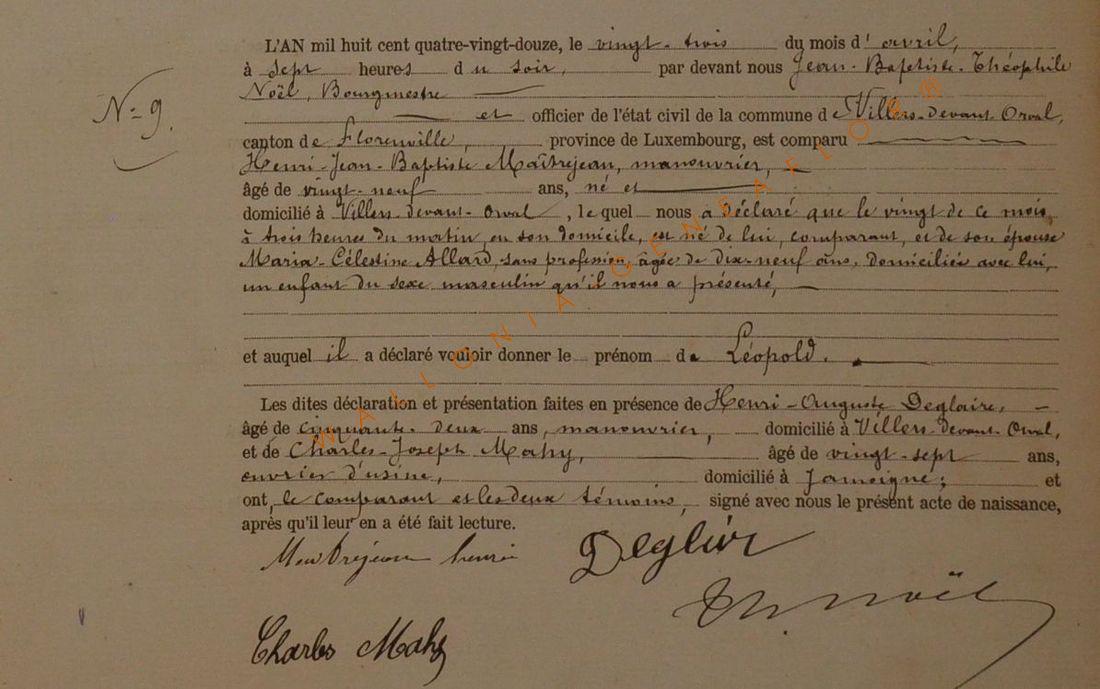 L'AN mil huit cent quatre-vingt-douze, le vingt-trois du mois d'avril,
à sept heures du soir, par devant nous Jean-Baptiste-Théophile
N° 9. Noël, Bourgmestre
et officier de l'état civil de la commune de Villers-devant-Orval,
canton de Florenville, province de Luxembourg, est comparu
Henri-Jean-Baptiste Maîtrejean, manouvrier,
âgé de vingt-neuf ans, né et
domicilié à Villers-devant-Orval, lequel nous a déclaré que le vingt de ce mois,
à trois heures du matin, en son domicile, est né de lui, comparant, et de son épouse
Maria-Célestine Allard, sans profession, âgée de dix-neuf ans, domiciliée avec lui,
un enfant du sexe masculin qu'il nous a présenté,
et auquel il a déclaré vouloir donner le prénom de Léopold.
Les dites déclaration et présentation faites en présence de Henri-Auguste Deglaire,
âgé de cinquante-deux ans, manouvrier, domicilié à Villers-devant-Orval,
et de Charles-Joseph Mahy, âgé de vingt-sept ans,
ouvrier d'usine, domicilié à Jamoigne; et
ont, le comparant et les deux témoins, signé avec nous le présent acte de naissance,
après qu'il leur en a été fait lecture.
henri Deglair
Th. Noël
Charles Mahy
WALLONIA GENEAFLOR®